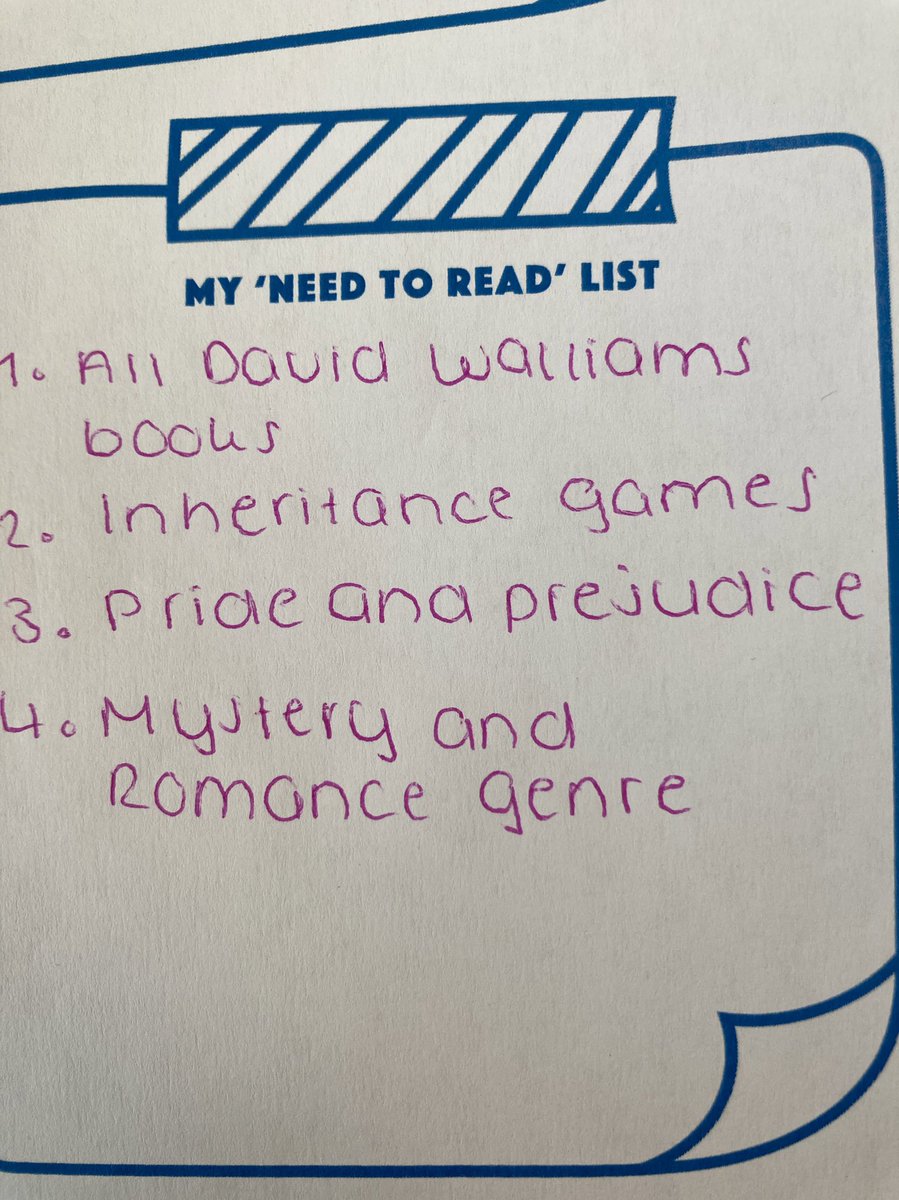 MY 'NEED TO READ' LIST
1. All David Walliams
books
2. Inheritance games
3. Pride and prejudice
4. Mystery and
Romance genre